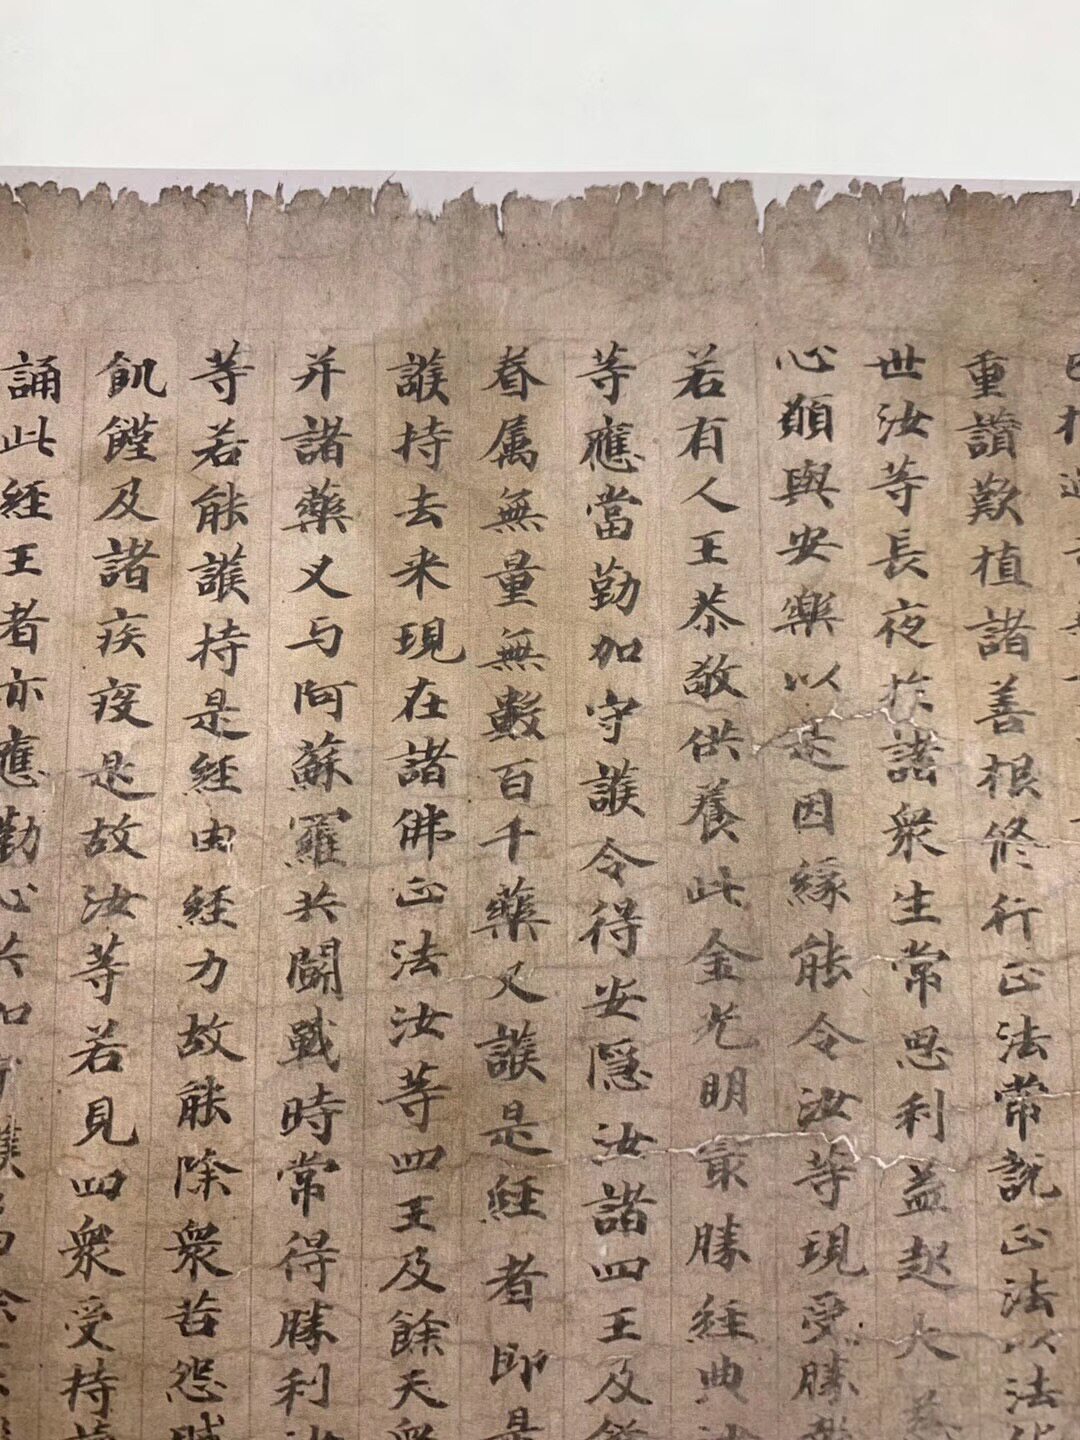 重讃歎植諸善根修行正法常說正法以法
世汝等長夜於諸衆生常思利益起大慈
心願與安樂以是因緣能令汝等現受勝
若有人王恭敬供養此金光明最勝經典汝
等應當勤加守護令得安隱汝諸四王及餘
眷属無量無數百千藥叉護是經者即是
護持去来現在諸佛正法汝等四王及餘天衆
并諸藥叉与阿蘇羅共鬪戰時常得勝利汝
等若能護持是經由經力故能除衆苦怨賊
飢饉及諸疾疫是故汝等若見四衆受持
誦此經王者亦應勤心共加守護